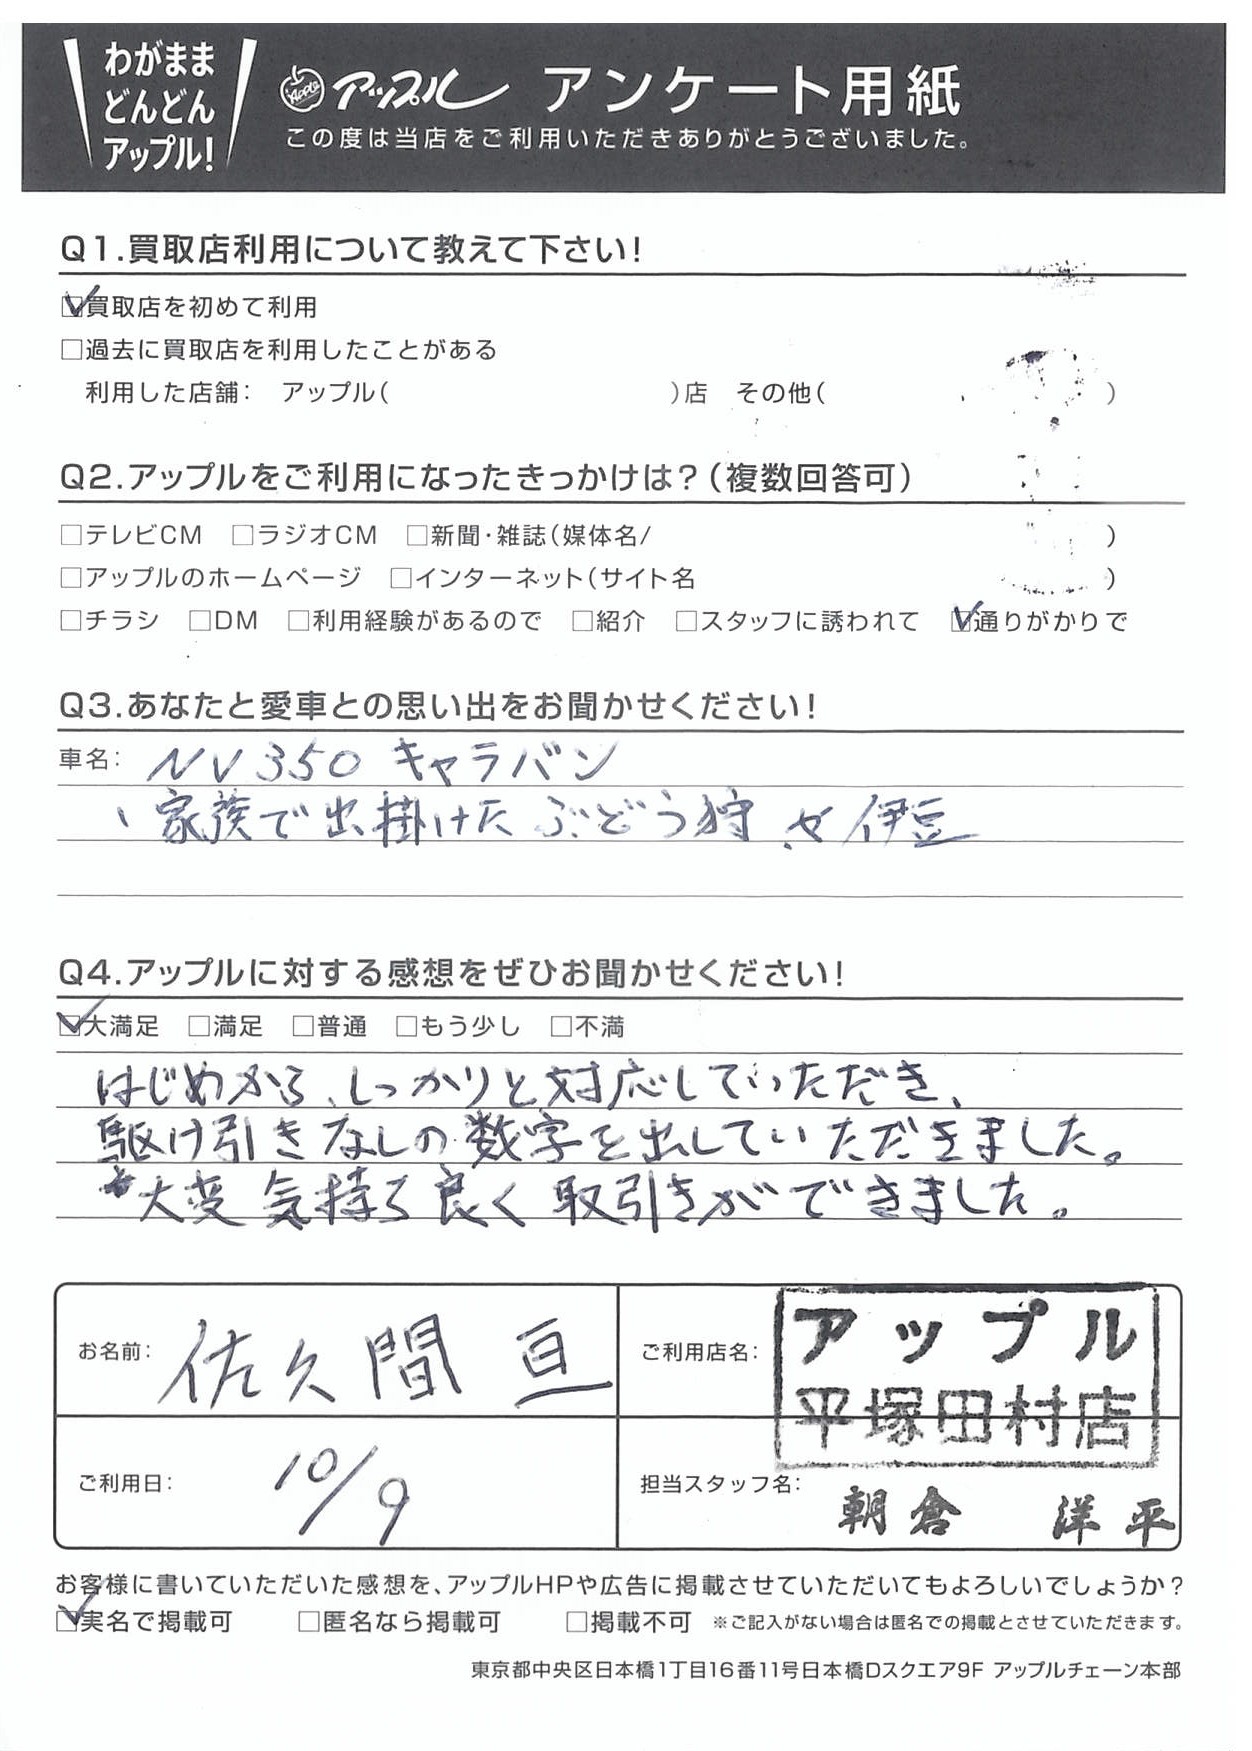 わがまま
どんどん
アップル!
Apple アップル アンケート用紙
この度は当店をご利用いただきありがとうございました。
Q1.買取店利用について教えて下さい!
☑買取店を初めて利用
□過去に買取店を利用したことがある
利用した店舗： アップル( )店 その他( )
Q2.アップルをご利用になったきっかけは?(複数回答可)
□テレビCM □ラジオCM □新聞・雑誌(媒体名/ )
□アップルのホームページ □インターネット(サイト名 )
□チラシ □DM □利用経験があるので □紹介 □スタッフに誘われて ☑通りがかりで
Q3.あなたと愛車との思い出をお聞かせください!
車名： NV350 キャラバン
、家族で出掛けた ぶどう狩 や 伊豆
Q4.アップルに対する感想をぜひお聞かせください!
☑大満足 □満足 □普通 □もう少し □不満
はじめから、しっかりと対応していただき、
駆け引きなしの数字を出していただきました。
大変 気持ち良く 取引きができました。
お名前： 佐久間 亘
ご利用店名： アップル
平塚田村店
ご利用日： 10/9
担当スタッフ名： 朝倉 洋平
お客様に書いていただいた感想を、アップルHPや広告に掲載させていただいてもよろしいでしょうか?
☑実名で掲載可 □匿名なら掲載可 □掲載不可 ※ご記入がない場合は匿名での掲載とさせていただきます。
東京都中央区日本橋1丁目16番11号日本橋Dスクエア9F アップルチェーン本部